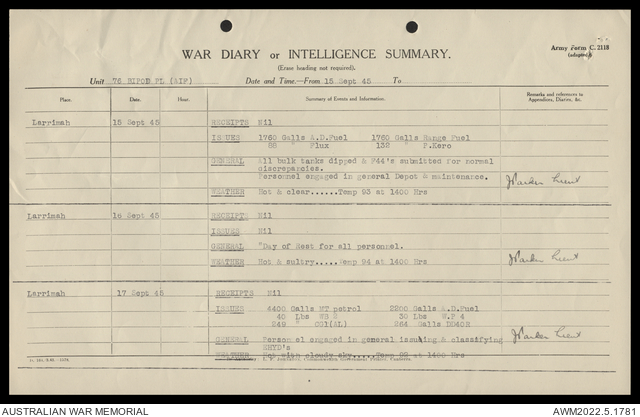 Army Form C. 2118
(adapted)
WAR DIARY or INTELLIGENCE SUMMARY.
(Erase heading not required).
Unit 76 BIPOD PL (AIF) Date and Time.—From 15 Sept 45 To
Place. Date. Hour. Summary of Events and Information. Remarks and references to Appendices, Diaries, &c.
Larrimah 15 Sept 45 RECEIPTS Nil
ISSUES 1760 Galls A.D.Fuel 1760 Galls Range Fuel
88 " Flux 132 " P.Kero
GENERAL All bulk tanks dipped & F44's submitted for normal
discrepancies.
Personnel engaged in general Depot & maintenance.
WEATHER Hot & clear......Temp 93 at 1400 Hrs
Larrimah 16 Sept 45 RECEIPTS Nil
ISSUES Nil
GENERAL "Day of Rest for all personnel.
WEATHER Hot & sultry.....Temp 94 at 1400 Hrs
Larrimah 17 Sept 45 RECEIPTS Nil
ISSUES 4400 Galls MT petrol 2200 Galls A.D.Fuel
40 Lbs 30 Lbs W.P 4
249 " 264 Galls
GENERAL Personnel engaged in general issuing & classifying
WEATHER Hot cloudy sky.....Temp 92 at 1400 Hrs
AUSTRALIAN WAR MEMORIAL AWM2022.5.1781